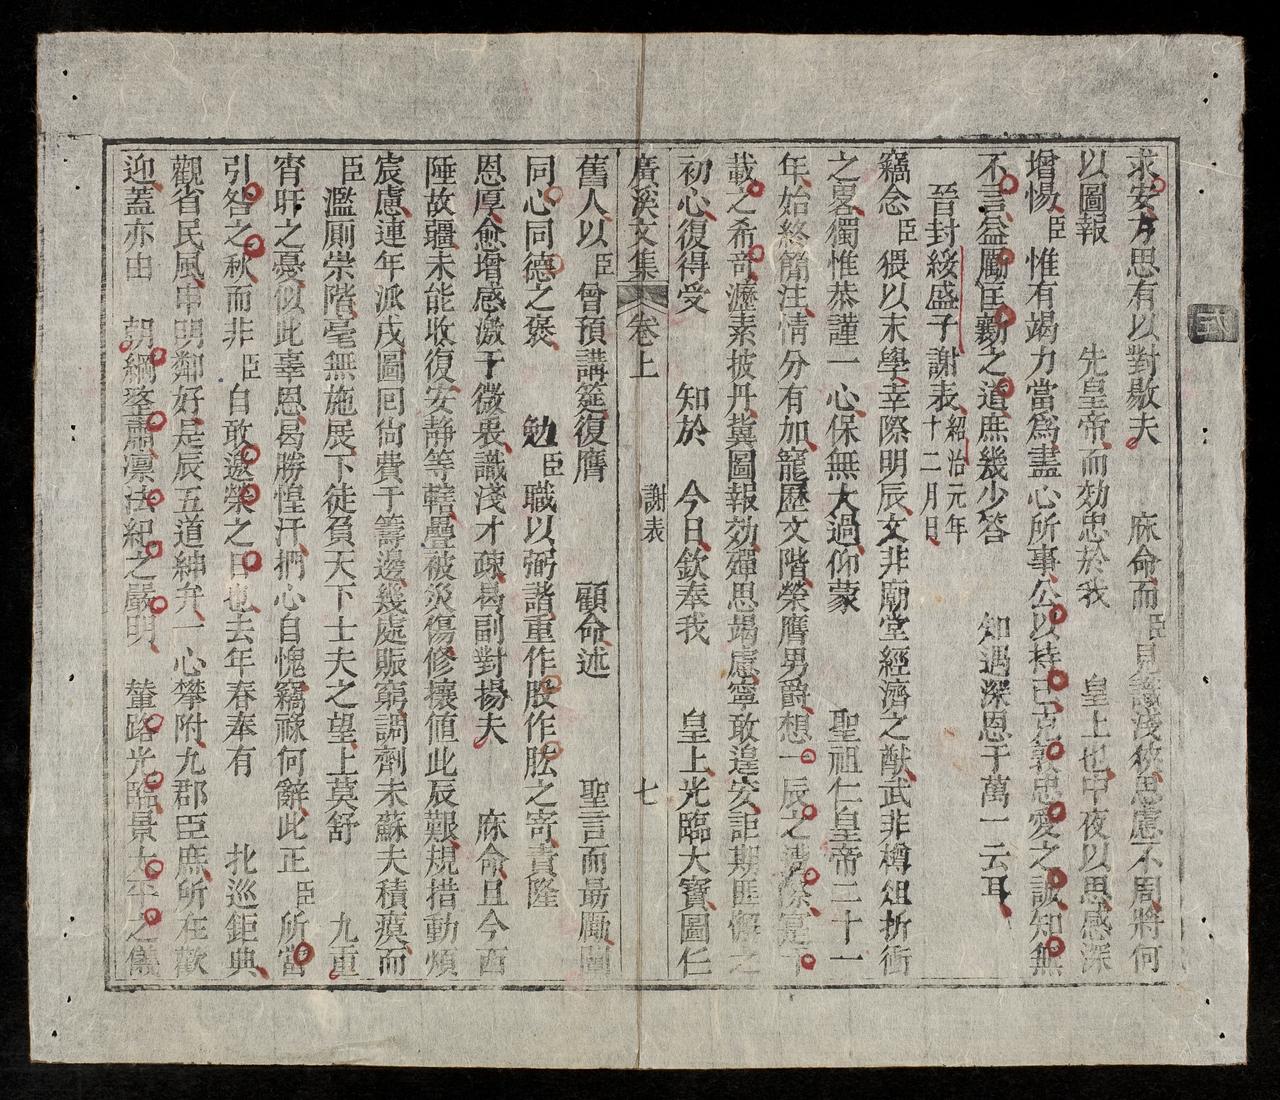 求安方思有以對歇夫 麻命而臣見識淺狹思慮不周將何
以圖報 先皇帝而効忠於我 皇上也中夜以思感深
增惕臣惟有竭力當為盡心所事公以持己克義忠愛之誠知無
不言益勵匡勷之道庶幾少答 知遇深恩于萬一云耳
晉封綏盛子謝表紹治元年十二月日
竊念臣猥以末學幸際明辰文非廟堂經濟之猷武非樽俎折衝
之畧獨惟恭謹一心保無大過仰蒙 聖祖仁皇帝二十一
年始終簡注情分有加寵歷文階榮膺男爵想一辰之際寔
載之希奇瀝素披丹冀圖報効殫思竭慮寧敢遑安詎期匪懈之
初心復得受 知於 今日欽奉我 皇上光臨大寶圖仁
廣溪文集 卷上 謝表 七
舊人以臣曾預講筵復膺 顧命述 聖言而勗勵圖
同心同德之褒 勉臣職以弼諧重作股作肱之寄責隆
恩厚愈增感激于微衷識淺才疎曷副對揚夫 麻命且今西
陲故疆未能收復安靜等轄疊被災傷修攘値此辰艱規措動煩
宸慮連年派戍圖回尙費于籌邊幾處賑窮調劑未蘇夫積瘼而
臣濫厠崇階毫無施展下徒負天下士夫之望上莫舒 九重
宵旰之憂似此辜恩曷勝惶汗捫心自愧竊祿何辭此正臣所當
引咎之秋而非臣自敢邀榮之日也去年春奉有 北巡鉅典
觀省民風申明鄰好是辰五道紳弁一心攀附九郡臣庶所在歡
迎蓋亦由 朝綱整肅凜法紀之嚴明 輦路光臨景太平之儀